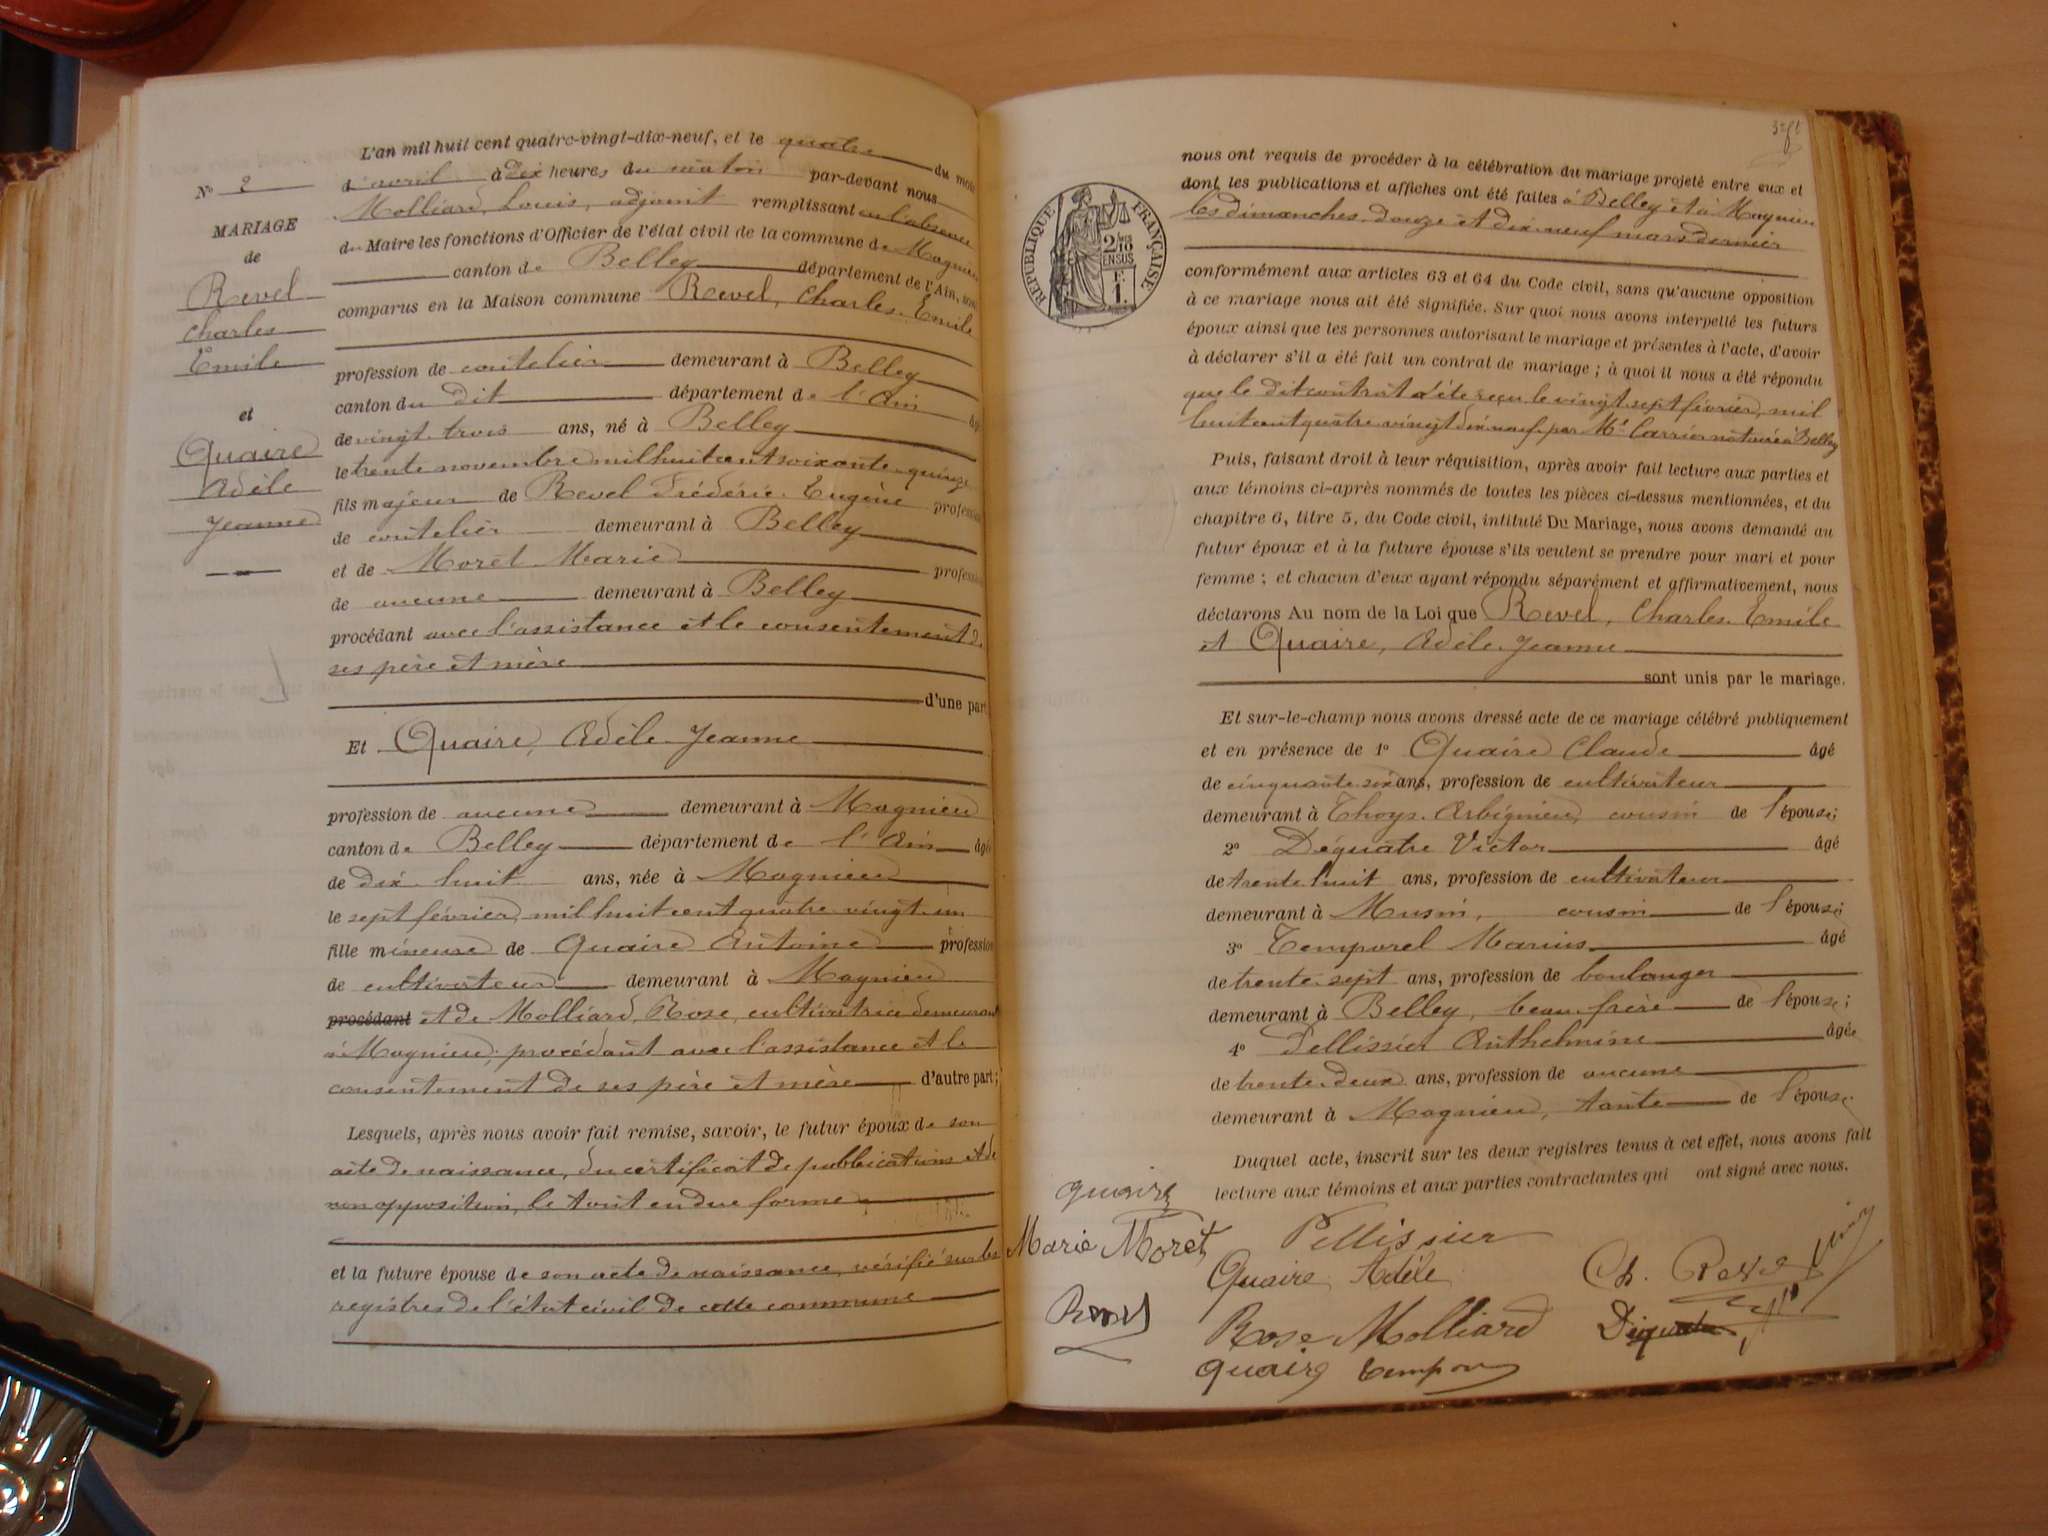 N° 2
MARIAGE
de
Revel
Charles
Emile
et
Quaire
Adèle
Jeanne
L'an mil huit cent quatre-vingt-dix-neuf, et le quatre du mois
d'avril à dix heures du matin par-devant nous
Molliard, Louis, adjoint remplissant en l'absence
du Maire les fonctions d'Officier de l'état civil de la commune de Magnieu
canton de Belley département de l'Ain, sont
comparus en la Maison commune Revel, Charles Emile
profession de coutelier demeurant à Belley
canton du dit département de l'Ain âgé
de vingt trois ans, né à Belley
le trente novembre mil huit cent soixante quinze
fils majeur de Revel Frédéric Eugène profession
de coutelier demeurant à Belley
et de Moret Marie profession
de aucune demeurant à Belley
procédant avec l'assistance et le consentement de
ses père et mère
d'une part
Et Quaire, Adèle Jeanne
profession de aucune demeurant à Magnieu
canton de Belley département de l'Ain âgé
de dix huit ans, née à Magnieu
le sept février mil huit cent quatre vingt un
fille mineure de Quaire Antoine profession
de cultivateur demeurant à Magnieu
procédant et de Molliard, Rose, cultivatrice demeurant
à Magnieu, procédant avec l'assistance et le
consentement de ses père et mère d'autre part;
Lesquels, après nous avoir fait remise, savoir, le futur époux de son
acte de naissance, du certificat de publications et de
non opposition, le tout en due forme
et la future épouse de son acte de naissance, vérifié sur les
registres de l'état civil de cette commune
RÉPUBLIQUE FRANÇAISE
2
10
EN SUS
F
1.
nous ont requis de procéder à la célébration du mariage projeté entre eux et
dont les publications et affiches ont été faites à Belley et à Magnieu
les dimanches douze et dix neuf mars dernier
conformément aux articles 63 et 64 du Code civil, sans qu'aucune opposition
à ce mariage nous ait été signifiée. Sur quoi nous avons interpellé les futurs
époux ainsi que les personnes autorisant le mariage et présentes à l'acte, d'avoir
à déclarer s'il a été fait un contrat de mariage ; à quoi il nous a été répondu
que le dit contrat a été reçu le vingt sept février, mil
huit cent quatre vingt dix neuf par Me Carrier notaire à Belley
Puis, faisant droit à leur réquisition, après avoir fait lecture aux parties et
aux témoins ci-après nommés de toutes les pièces ci-dessus mentionnées, et du
chapitre 6, titre 5, du Code civil, intitulé Du Mariage, nous avons demandé au
futur époux et à la future épouse s'ils veulent se prendre pour mari et pour
femme ; et chacun d'eux ayant répondu séparément et affirmativement, nous
déclarons Au nom de la Loi que Revel, Charles Emile
et Quaire, Adèle Jeanne
sont unis par le mariage.
Et sur-le-champ nous avons dressé acte de ce mariage célébré publiquement
et en présence de 1° Quaire Claude âgé
de cinquante six ans, profession de cultivateur
demeurant à Thoys Arbignieu, cousin de l'épouse;
2° Dequatre Victor âgé
de trente huit ans, profession de cultivateur
demeurant à Musin, cousin de l'épouse;
3° Temporel Marius âgé
de trente sept ans, profession de boulanger
demeurant à Belley, beau frère de l'épouse;
4° Pellissier Anthelmine âgée
de trente deux ans, profession de aucune
demeurant à Magnieu, tante de l'épouse.
Duquel acte, inscrit sur les deux registres tenus à cet effet, nous avons fait
lecture aux témoins et aux parties contractantes qui ont signé avec nous.
Quaire
Pellissier
Marie Moret
Quaire Adèle
Ch. Revel
Revel
Rose Molliard
Quaire